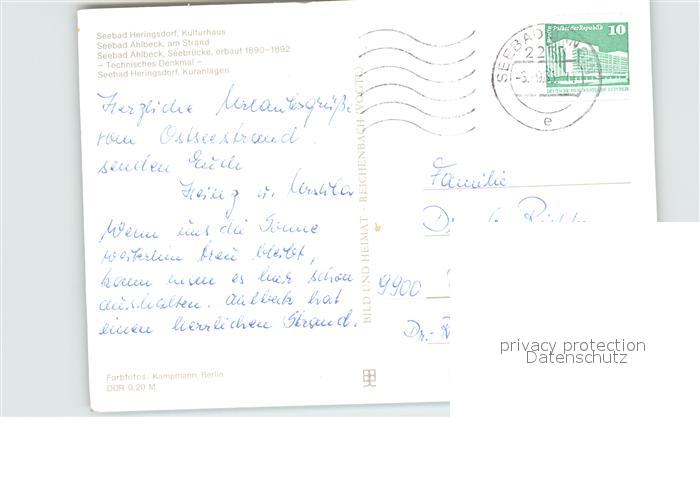 Seebad Heringsdorf, Kulturhaus
Seebad Ahlbeck, am Strand
Seebad Ahlbeck, Seebrücke, erbaut 1890-1892
- Technisches Denkmal -
Seebad Heringsdorf, Kuranlagen
Herzliche Urlaubsgrüße
vom Ostseestrand
senden Euch
Heinz u. Ursula
Wenn uns die Sonne
weiterhin treu bleibt,
kann man es hier schon
aushalten. Ahlbeck hat
einen herrlichen Strand.
Farbfotos: Kampmann, Berlin
DDR 0,20 M
BILD UND HEIMAT · REICHENBACH (VOGTL)
SEEBAD
22
e
Palast der Republik
10
DEUTSCHE DEMOKRATISCHE REPUBLIK
Familie
9900
Dr.-
privacy protection
Datenschutz